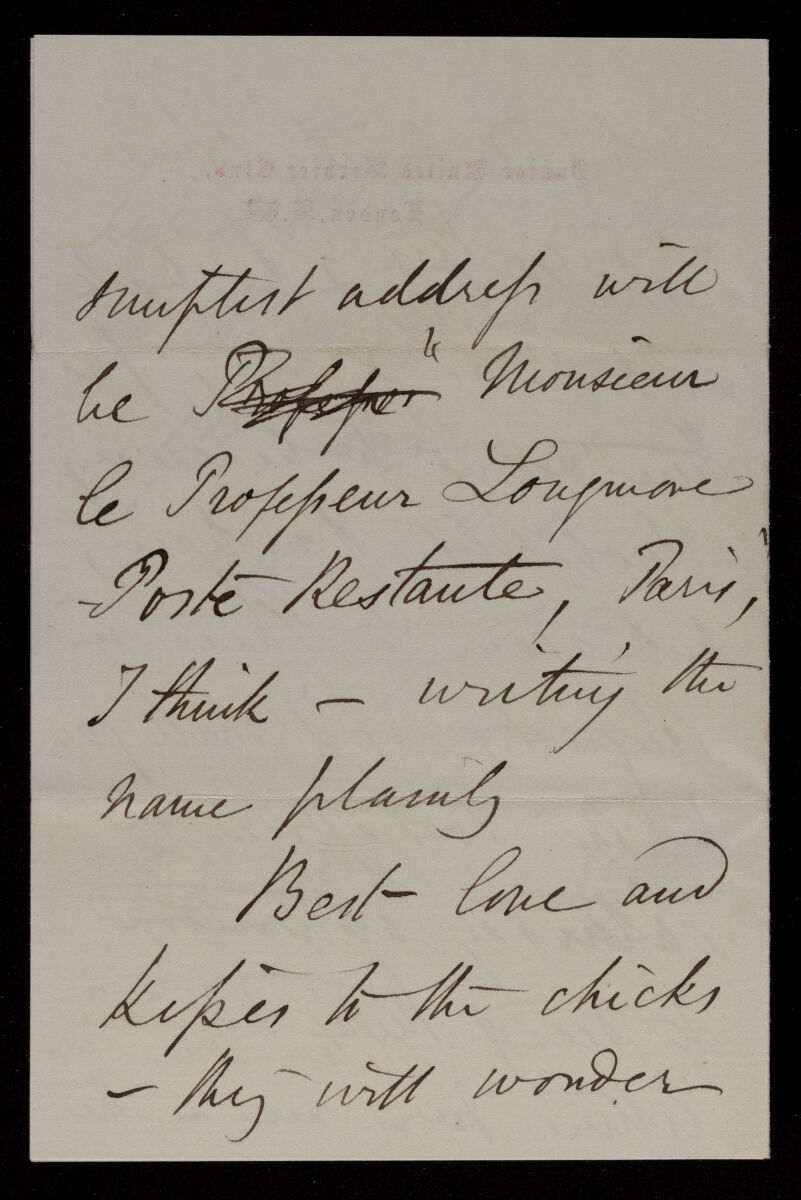 Junior United Service Club,
London. S.W.
simplest address will
be Professor " Monsieur
le Professeur Longmore
Poste Restante, Paris,"
I think – writing the
name plainly
Best love and
kisses to the chicks
– they will wonder